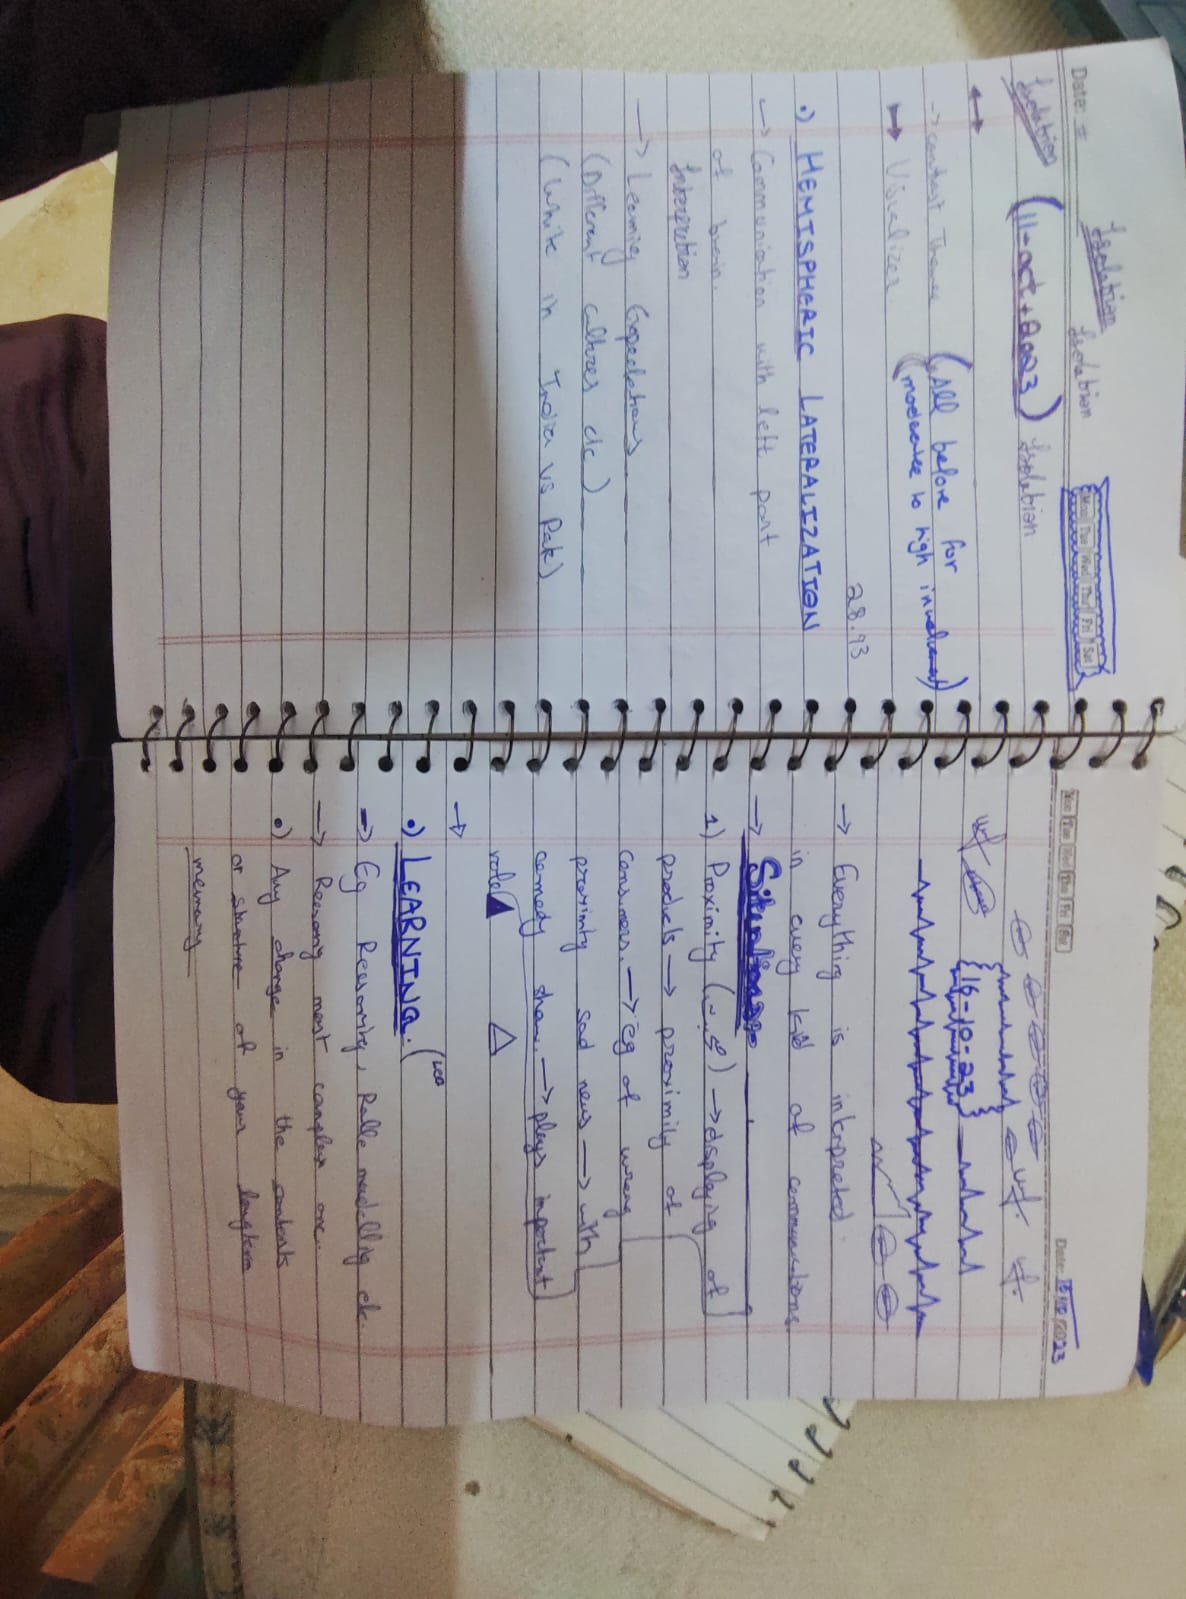 Isolation
Date: #
Isolation
Mon Tue Wed Thu Fri Sat
Isolation
(11-oct+2023)
Isolation
→ contrast Themes
(All before for
moderatee to high involvement)
Visualizer
28.93
•) HEMISPHERIC LATERALIZATION
→ Communiation with left part
of brain.
Interpretion
→ Learnig Expectations
(Different cultures etc)
(White in India vs Pak)
Mon Tue Wed Thu Fri Sat
Date: 16/10/2023
16-10-23
→ Everything is interpreted
in every kid of communications.
→ Situations:-
1) Proximity → displaying of
products → proximity of
consumers. → eg of wrong
proximity sad news → with
comedy show. → plays important
role
→
•) LEARNING. (LEA
→ Eg Reasoning, Rolle modellig etc
→ Resong most complex one.
•) Any change in the contents
or structure of your longterm
memory